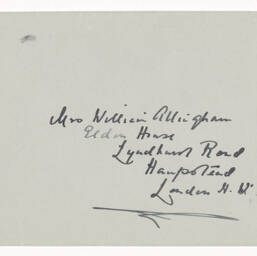 Mrs William Allingham
Eldon House
Lyndhurst Road
Hampstead
London N. W.